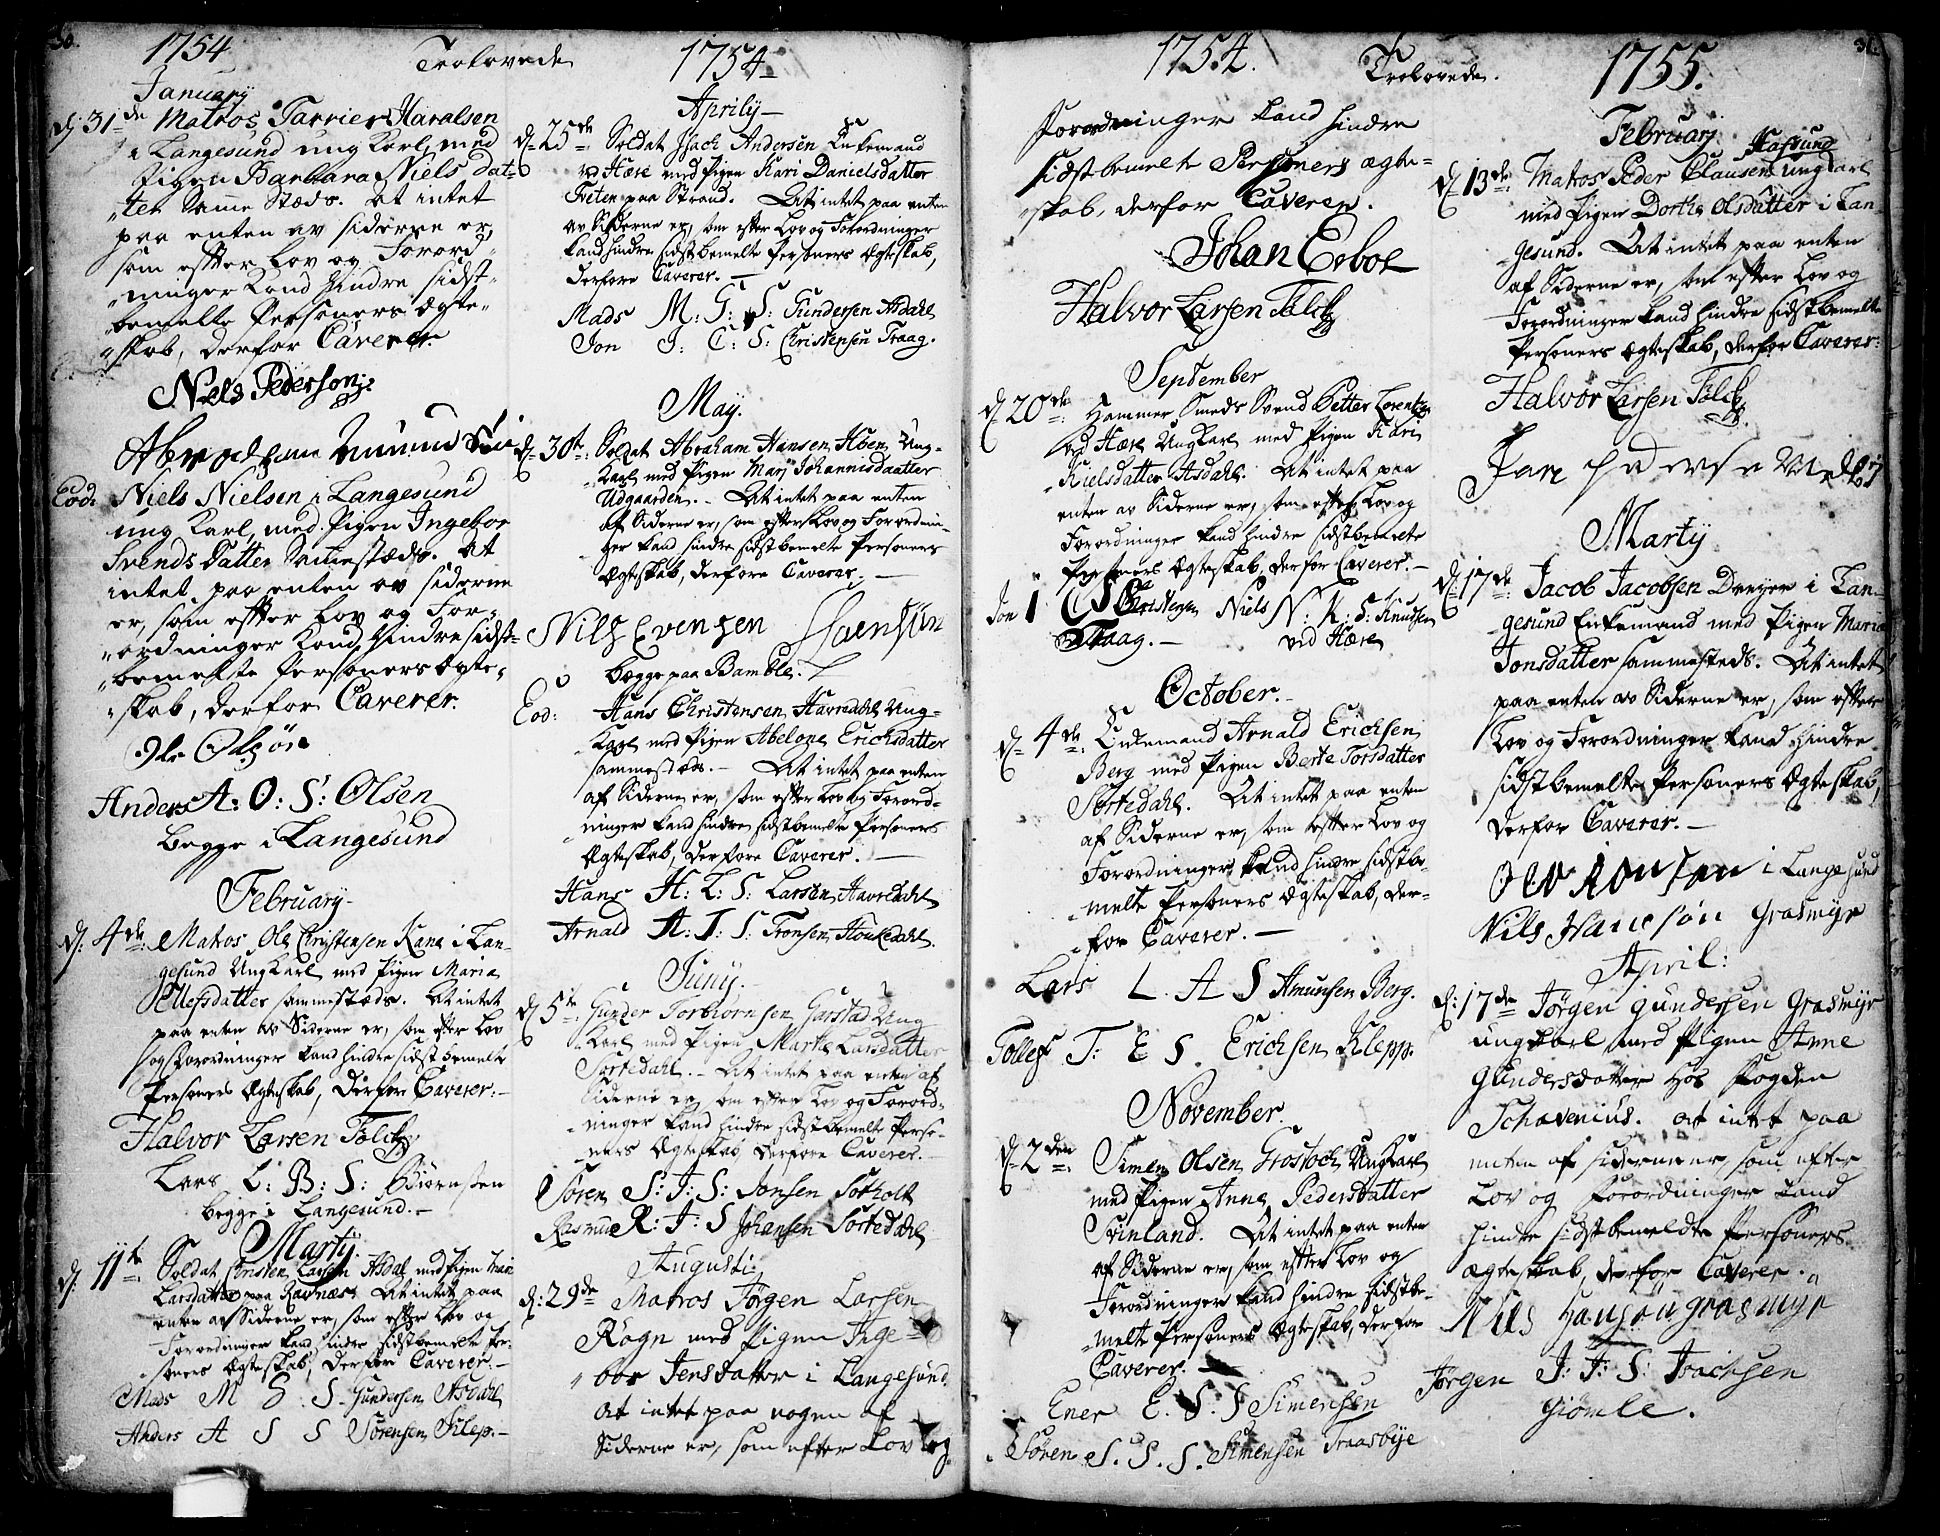 30.
1754
Trolovede
January
d. 31te Matros Tarrier Haralsen
i Langesund ung Karl, med
Pigen Barbara Niels dat-
„ter samme Stæds. At intet
paa enten av siderne er,
som effter Lov og Forord„
„ninger Kand hindre sidst-
„bemelte Personers Ægte„
„skab, derfor Caverer
Niels Pederson:
Eod: Niels Nielsen i Langesund
ung Karl, med Pigen Ingebor
Svends Datter Sammestæds. At
intet paa enten av siderne
er, som effter Lov og For„
„ordninger Kand hindre sidst-
„bemelte Personers Ægte„
„skab, derfor Caverer.
Ole Olsøn
Anders A: O: S: Olsen
begge i Langesund
February
d. 4de: Matros Ole Christensen Kane i Lan-
gesund Ungkarl med Pigen Maria
Ellefsdatter sammestæds. At intet
paa enten av Siderne er, som efter Lov
og Forordninger kand hindre sidst bemelte
Personers Ægteskab, Derfore Caverer.
Halvor Larsen Tolck
Lars L: B: S: Biørnsen
begge i Langesund.
Martij.
d. 11te: Soldat Christen Larsen Asdal med Pigen Mari
Larsdatter paa Ravnæs. At intet paa
enten av Siderne er, som efter Lov og
Forordninger kand hindre sidstbemelte Per-
soners Ægteskab, Derfore Caverer.
Mads M G: S. Gundersen Asdahl
Anders A S S Sørensen Klep.
1754
Aprily
d. 25de: Soldat Isach Andersen Enkemand
ved Herre med Pigen Kari Danielsdatter
Tveten paa Strand. At intet paa enten
av Siderne er, som efter Lov og Forordninger
kand hindre sidst bemelte Personers Ægteskab,
Derfore Caverer.
Mads M: G: S: Gundersen Asdahl
Jon J: C: S: Christensen Traag.
May.
d. 30te: Soldat Abraham Hansen Høen Ung-
karl med Pigen Mary Johannisdaatter
Udgaarden. At intet paa enten
af Siderne er, som efter Lov og Forordnin-
ger kand hindre sidstbemelte Personers
Ægteskab, derfore Caverer.
Nils Evensen
begge paa Bamble.
Eod: Hans Christensen Havredahl Ung-
karl med Pigen Abelone Erichsdatter
sammestæds. At intet paa enten
af Siderne er, som efter Lov og Forord-
ninger kand hindre sidstbemelte Personers
Ægteskab, Derfore Caverer.
Hans H: L: S: Larsen Havredahl
Arnald A: T: S: Tronsen Houkedahl.
Juny.
d. 5te: Gunder Torbiørnsen Garstad Ung
karl med Pigen Marte Larsdatter
Sortedahl. At intet paa enten af
Siderne er, som efter Lov og Forord-
ninger kand hindre sidstbemelte Perso-
ners Ægteskab, Derfore Caverer.
Søren S: J: S: Jonsen Sotholt
Rasmus R: J: S Johansen Sortedahl
Augusti:
d: 29de Matros Jørgen Larsen
Rogn med Pigen Inge
„bor Jensdatter i Langesund.
At intet paa nogen af
Siderne er, som efter Lov og
1754.
Trolovede.
Forordninger kand hindre
sidstbemelte Personers ægte-
„skab, derfor Caverer.
Johan Erboe
Halvor Larsen Tolck
September
d. 20de: Hammer Smeds Svend Petter Lorentzen
ved Herre Ungkarl med Pigen Kari
Nielsdatter Asdahl. At intet paa
enten av Siderne er, som efter Lov og
Forordninger kand hindre sidstbemelte
Personers Ægteskab, derfor Caverer.
Jon I C S Christensen Niels N: K: S: Knudsen
Traag. ved Herre
October.
d. 4de: Enkemand Arnald Erichsen
Berg med Pigen Berte Torsdatter
Sortedahl. At intet paa enten
af Siderne er, som effter Lov og
Forordninger kand hindre sidstbe-
melte Personers Ægteskab, der-
for Caverer.
Lars L. A S Amunsen Berg.
Tollef T: E S. Erichsen Klepp.
November.
d. 2den: Simen Olsen Grostoch Ungkarl
med Pigen Anne Pedersdatter
Svinland. At intet paa enten
af Siderne er, som effter Lov og
Forordninger kand hindre sidstbe-
melte Personers Ægteskab, derfor
Caverer.
Ener E. S. S Simensen
Søren S. S. S. Simensen Traasbye
1755.
February.
d. 13de: Matros Peder Clausen ungkarl
med Pigen Dorthe Olsdatter i Lan-
gesund. At intet paa enten
af Siderne er, som efter Lov og
Forordninger kand hindre sidstbemelte
Personers Ægteskab, derfor Caverer:
Halvor Larsen Tolck
Marty
d. 17de: Jacob Jacobsen Dreyer i Lan-
gesund Enkemand med Pigen Maria
Jonsdatter sammesteds. At intet
paa enten av Siderne er, som efter
Lov og Forordninger kand hindre
sidstbemelte Personers Ægteskab,
derfor Caverer.
i Langesund
Nils Hansøn Grasmyr
April:
d: 17de Jørgen Gundersen Grasmyr
ungkarl med Pigen Anne
Gundersdatter hos Fogden
Schavenius. at intet paa
enten af siderne er, som efter
Lov og Forordninger kand
hindre sidstbemeldte Personers
ægteskab, derfor Caverer.
Nils Hansøn Grasmyr
Jørgen J: I: S: Isachsen
Giømle.